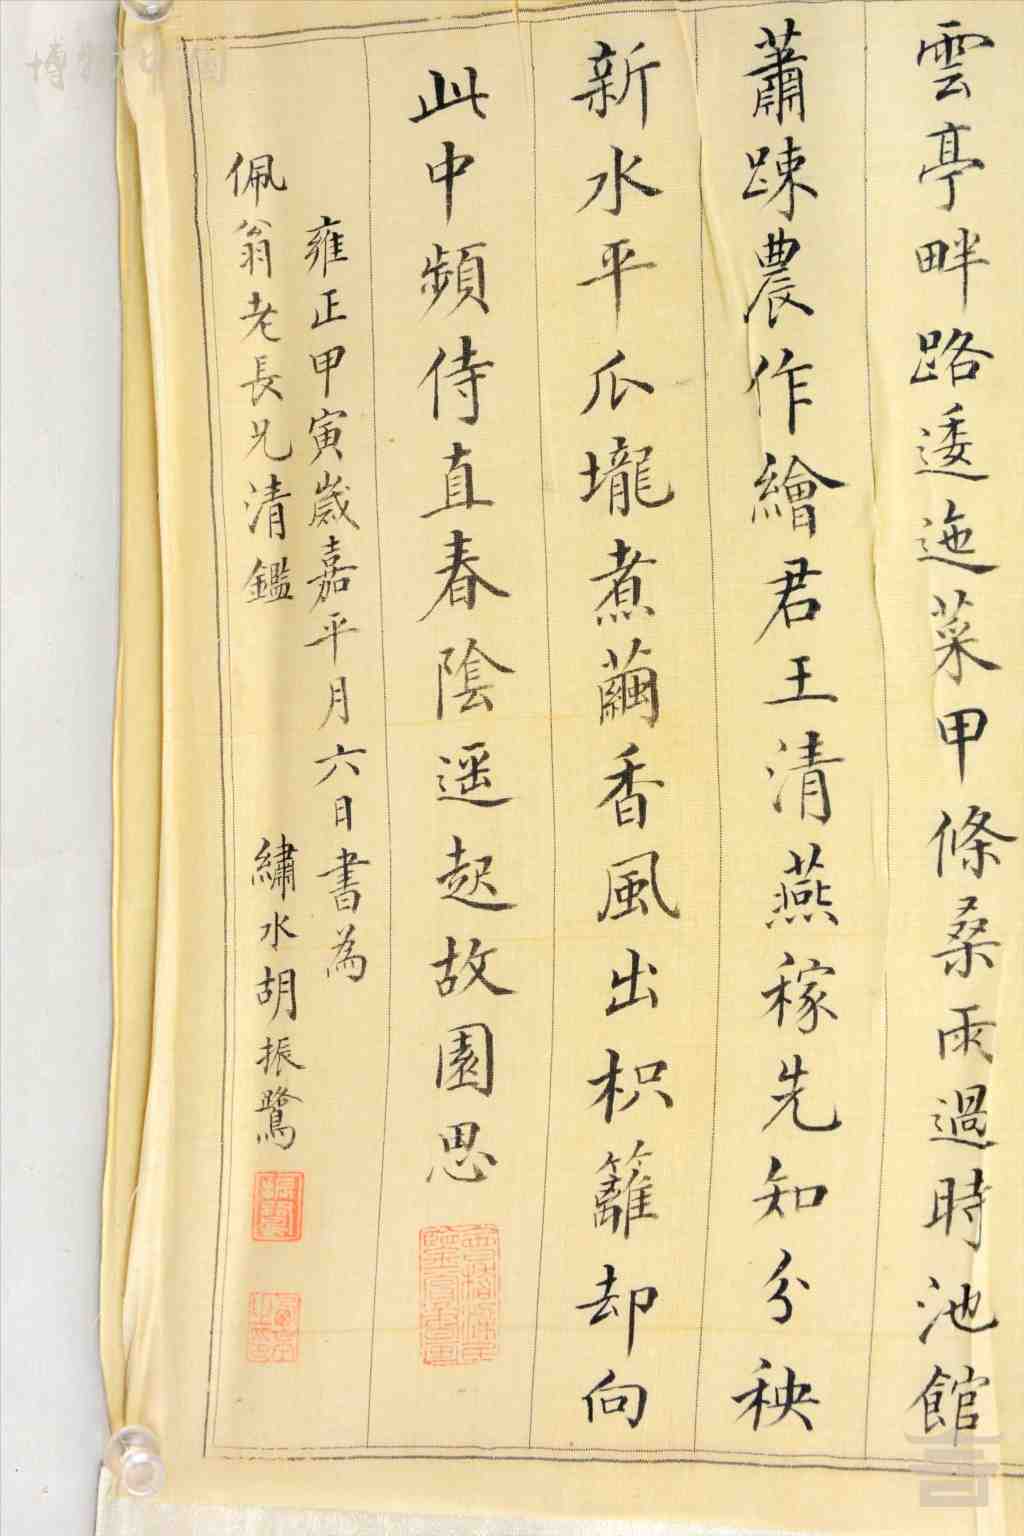 雲亭畔路逶迤菜甲條桑雨過時池館
蕭踈農作繪君王清燕稼先知分秧
新水平瓜壠煮繭香風出枳籬却向
此中頻侍直春陰遥起故園思
雍正甲寅歲嘉平月六日書為
佩翁老長兄清鑑
繡水胡振鷺
博物中國